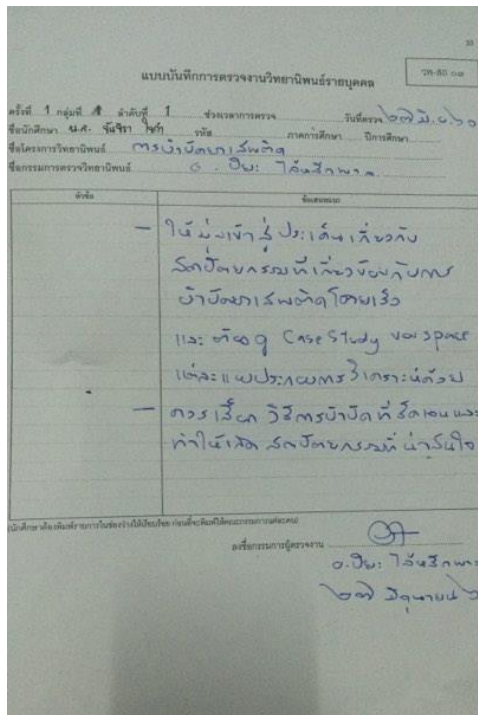 33
แบบบันทึกการตรวจงานวิทยานิพนธ์รายบุคคล
วพ-สถ ๐๗
ครั้งที่ 1 กลุ่มที่ 1 ลำดับที่ 1 ช่วงเวลาการตรวจ วันที่ตรวจ ๒๗ มิ.ย. ๖๐
ชื่อนักศึกษา น.ส. จันจิรา รหัส ภาคการศึกษา ปีการศึกษา
ชื่อโครงการวิทยานิพนธ์ การบำบัดยาเสพติด
ชื่อกรรมการตรวจวิทยานิพนธ์ อ. ปิยะ
หัวข้อ ข้อเสนอแนะ
– ให้มุ่งเข้าสู่ประเด็นเกี่ยวกับ
สถาปัตยกรรมที่เกี่ยวข้องกับการ
บำบัดยาเสพติดโดยเร็ว
และต้องดู Case Study ของ space
แต่ละแบบประกอบการวิเคราะห์ด้วย
– ควรเลือก วิธีการบำบัดที่ชัดเจนและ
ทำให้เกิด สถาปัตยกรรมที่น่าสนใจ
(นักศึกษาต้องพิมพ์รายการในช่องว่างให้เรียบร้อย ก่อนที่จะพิมพ์ให้คณะกรรมการแต่ละคน)
ลงชื่อกรรมการผู้ตรวจงาน
อ. ปิยะ
๒๗ มิถุนายน ๖